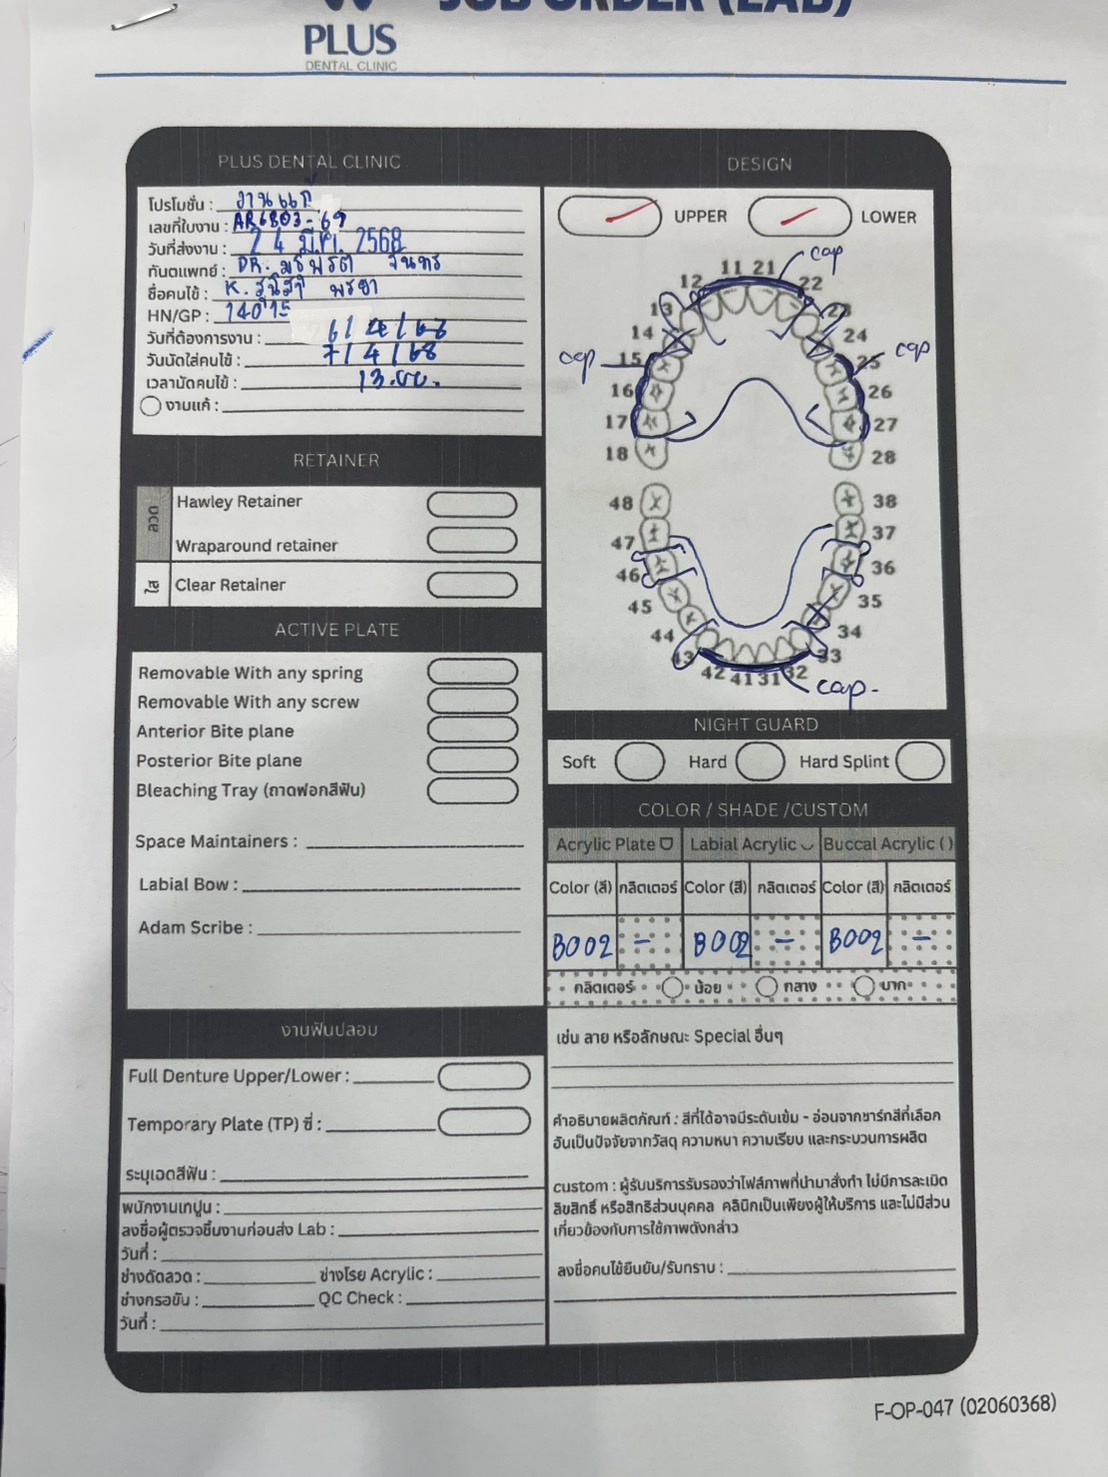 JOB ORDER (LAB)
PLUS
DENTAL CLINIC
PLUS DENTAL CLINIC
โปรโมชั่น : งานแก้
เลขที่ใบงาน : AR6803-69
วันที่ส่งงาน : 24 มี.ค. 2568
ทันตแพทย์ : DR.
ชื่อคนไข้ : K.
HN/GP : 14015
วันที่ต้องการงาน : 6/4/68
วันนัดใส่คนไข้ : 7/4/68
เวลานัดคนไข้ : 13.00.
งานแก้ :
RETAINER
ลวด
Hawley Retainer
Wraparound retainer
ใส
Clear Retainer
ACTIVE PLATE
Removable With any spring
Removable With any screw
Anterior Bite plane
Posterior Bite plane
Bleaching Tray (ถาดฟอกสีฟัน)
Space Maintainers :
Labial Bow :
Adam Scribe :
งานฟันปลอม
Full Denture Upper/Lower :
Temporary Plate (TP) ซี่ :
ระบุเฉดสีฟัน :
พนักงานเทปูน :
ลงชื่อผู้ตรวจชิ้นงานก่อนส่ง Lab :
วันที่ :
ช่างดัดลวด : ช่างโรย Acrylic :
ช่างกรอขัน : QC Check :
วันที่ :
DESIGN
UPPER LOWER
cap
11 21
12 22
13 23
14 24
cap 15 25 cap
16 26
17 27
18 28
48 38
47 37
46 36
45 35
44 34
43 33
42 41 31 32
cap-
NIGHT GUARD
Soft Hard Hard Splint
COLOR / SHADE /CUSTOM
Acrylic Plate Labial Acrylic Buccal Acrylic ( )
Color (สี) กลิตเตอร์ Color (สี) กลิตเตอร์ Color (สี) กลิตเตอร์
B002 - B002 - B002 -
กลิตเตอร์ น้อย กลาง มาก
เช่น ลาย หรือลักษณะ Special อื่นๆ
คำอธิบายผลิตภัณฑ์ : สีที่ได้อาจมีระดับเข้ม - อ่อนจากชาร์ทสีที่เลือก
อันเป็นปัจจัยจากวัสดุ ความหนา ความเรียบ และกระบวนการผลิต
custom : ผู้รับบริการรับรองว่าไฟล์ภาพที่นำมาสั่งทำ ไม่มีการละเมิด
ลิขสิทธิ์ หรือสิทธิส่วนบุคคล คลินิกเป็นเพียงผู้ให้บริการ และไม่มีส่วน
เกี่ยวข้องกับการใช้ภาพดังกล่าว
ลงชื่อคนไข้ยืนยัน/รับทราบ :
F-OP-047 (02060368)